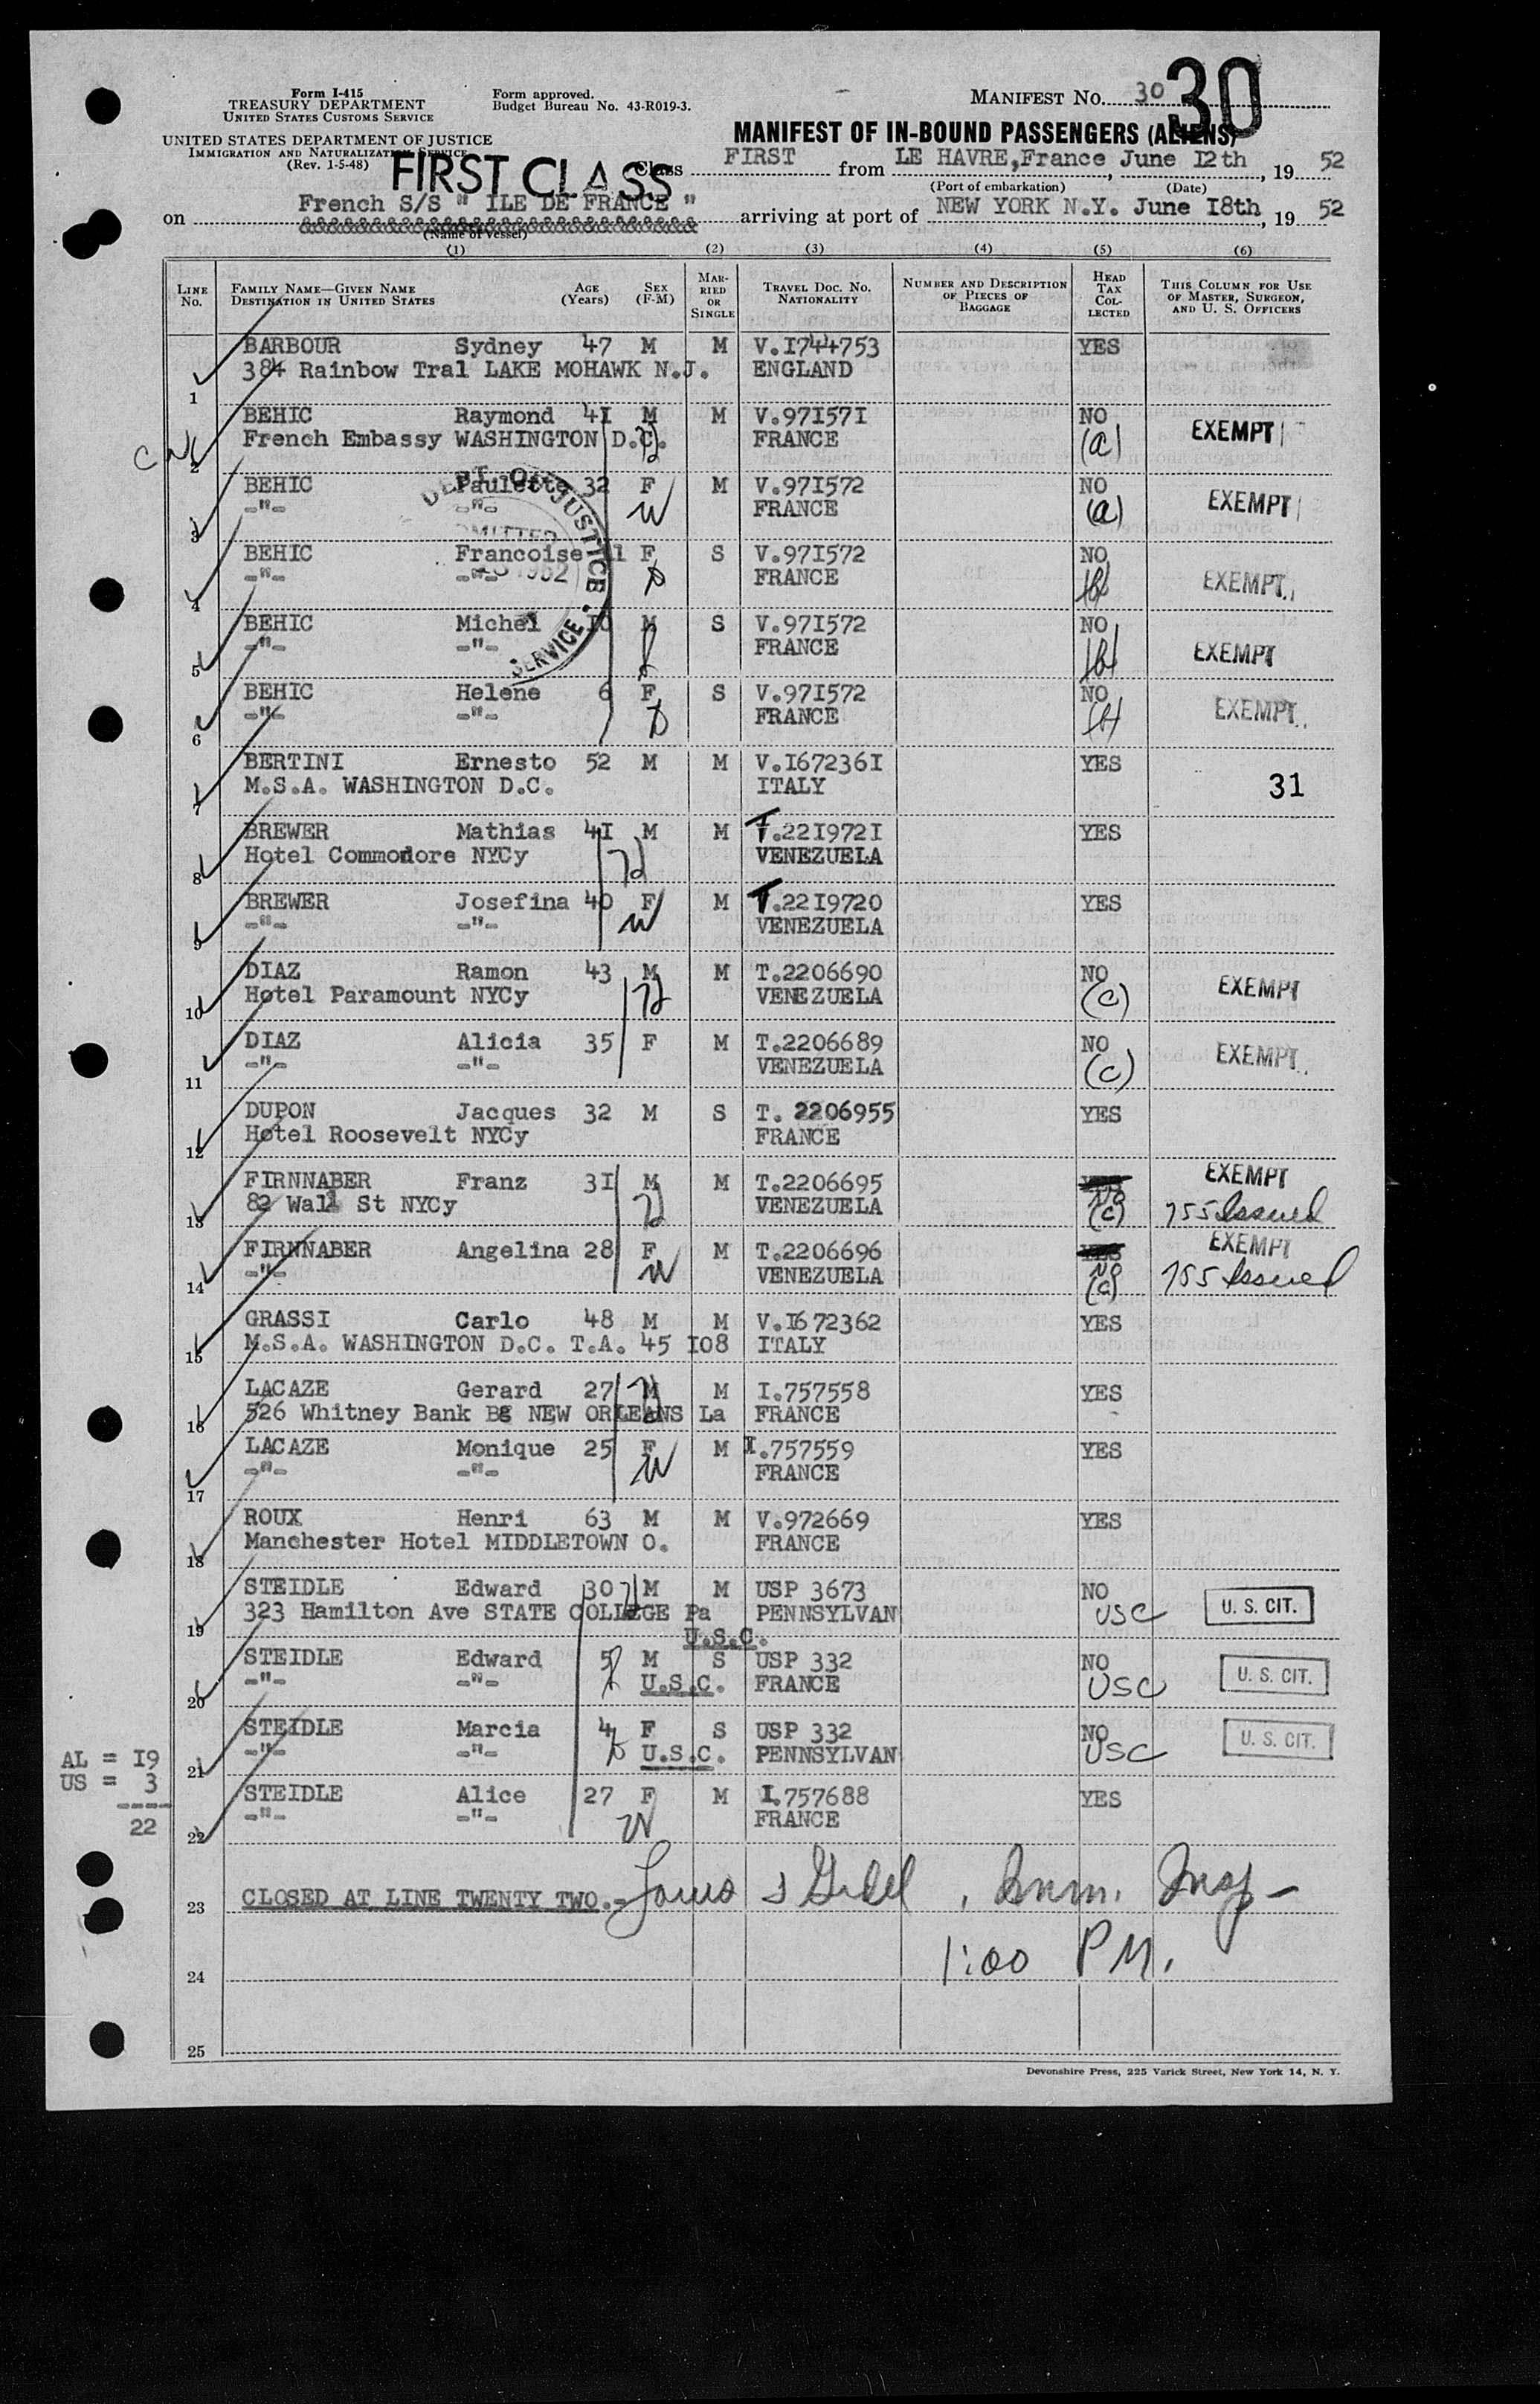 Form I-415
TREASURY DEPARTMENT
UNITED STATES CUSTOMS SERVICE
UNITED STATES DEPARTMENT OF JUSTICE
IMMIGRATION AND NATURALIZATION SERVICE
(Rev. 1-5-48)
Form approved.
Budget Bureau No. 43-R019-3.
MANIFEST No. 30
30
MANIFEST OF IN-BOUND PASSENGERS (ALIENS)
FIRST CLASS
Class FIRST from LE HAVRE,France June I2th, 19 52
(Port of embarkation) (Date)
on French S/S " ILE DE FRANCE " arriving at port of NEW YORK N.Y. June I8th, 19 52
(Name of vessel)
(1) (2) (3) (4) (5) (6)
LINE No. FAMILY NAME—GIVEN NAME DESTINATION IN UNITED STATES AGE (Years) SEX (F-M) MARRIED OR SINGLE TRAVEL DOC. No. NATIONALITY NUMBER AND DESCRIPTION OF PIECES OF BAGGAGE HEAD TAX COLLECTED THIS COLUMN FOR USE OF MASTER, SURGEON, AND U. S. OFFICERS
BARBOUR Sydney 47 M M V.I744753 YES
1 384 Rainbow Tral LAKE MOHAWK N.J. ENGLAND
BEHIC Raymond 4I M M V.97I57I NO EXEMPT
2 French Embassy WASHINGTON D.C. FRANCE (a)
BEHIC Paulette 32 F M V.97I572 NO EXEMPT
3 -"- -"- FRANCE (a)
BEHIC Francoise 11 F S V.97I572 NO EXEMPT
4 -"- -"- FRANCE
BEHIC Michel 10 M S V.97I572 NO EXEMPT
5 -"- -"- FRANCE
BEHIC Helene 6 F S V.97I572 NO EXEMPT
6 -"- -"- FRANCE
BERTINI Ernesto 52 M M V.I67236I YES
7 M.S.A. WASHINGTON D.C. ITALY 31
BREWER Mathias 4I M M T.22I972I YES
8 Hotel Commodore NYCy VENEZUELA
BREWER Josefina 40 F M T.22I9720 YES
9 -"- -"- VENEZUELA
DIAZ Ramon 43 M M T.2206690 NO EXEMPT
10 Hotel Paramount NYCy VENEZUELA (c)
DIAZ Alicia 35 F M T.2206689 NO EXEMPT
11 -"- -"- VENEZUELA (c)
DUPON Jacques 32 M S T. 2206955 YES
12 Hotel Roosevelt NYCy FRANCE
FIRNNABER Franz 3I M M T.2206695 NO EXEMPT
13 82 Wall St NYCy VENEZUELA (c) 755 Issued
FIRNNABER Angelina 28 F M T.2206696 NO EXEMPT
14 -"- VENEZUELA (c) 755 Issued
GRASSI Carlo 48 M M V.I672362 YES
15 M.S.A. WASHINGTON D.C. T.A. 45 I08 ITALY
LACAZE Gerard 27 M M I.757558 YES
16 526 Whitney Bank Bg NEW ORLEANS La FRANCE
LACAZE Monique 25 F M I.757559 YES
17 -"- -"- FRANCE
ROUX Henri 63 M M V.972669 YES
18 Manchester Hotel MIDDLETOWN O. FRANCE
STEIDLE Edward 30 M M USP 3673 NO U. S. CIT.
19 323 Hamilton Ave STATE COLLEGE Pa PENNSYLVAN USC
U.S.C.
STEIDLE Edward 5 M S USP 332 NO U. S. CIT.
20 -"- -"- U.S.C. FRANCE USC
STEIDLE Marcia 4 F S USP 332 NO U. S. CIT.
21 -"- -"- U.S.C. PENNSYLVAN USC
STEIDLE Alice 27 F M I.757688 YES
22 -"- -"- FRANCE
AL = I9
US = 3
22
23 CLOSED AT LINE TWENTY TWO.- Imm. Insp-
24 1:00 PM.
25
Devonshire Press, 225 Varick Street, New York 14, N. Y.